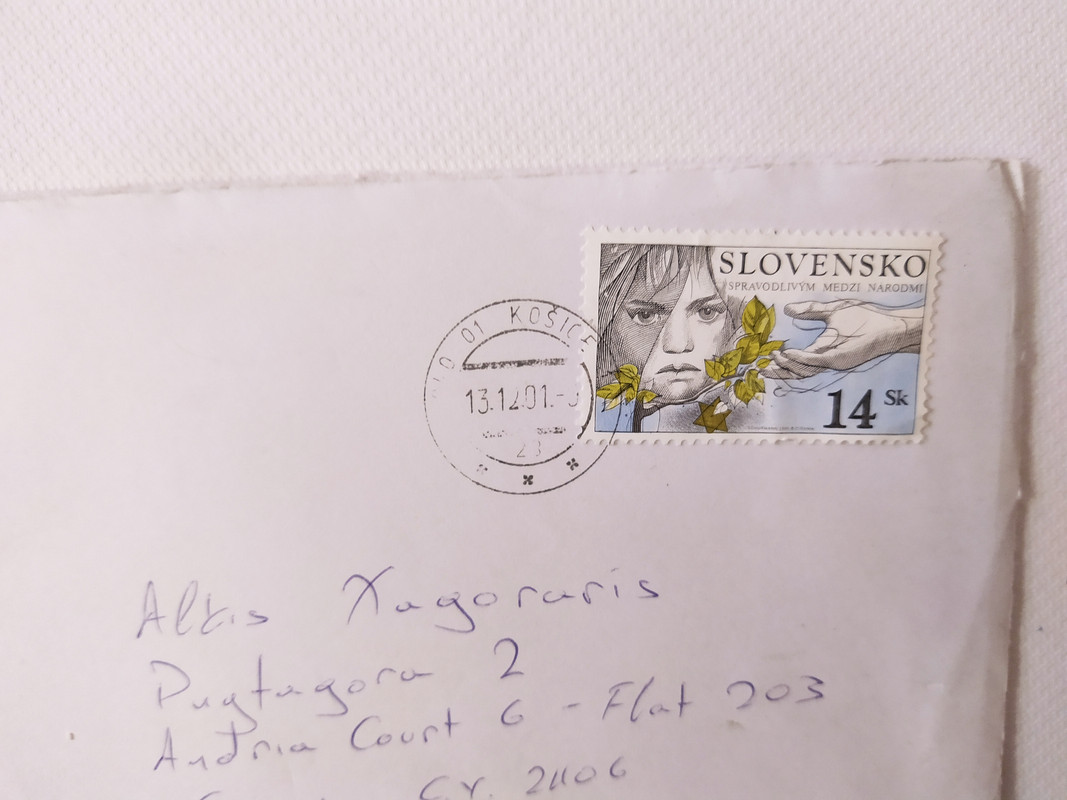 SLOVENSKO
SPRAVODLIVÝM MEDZI NÁRODMI
14 Sk
01 KOŠICE
13.12.01.-
23
Altis Xagoraris
2
Andria Court 6 - Flat 203
CY. 2406